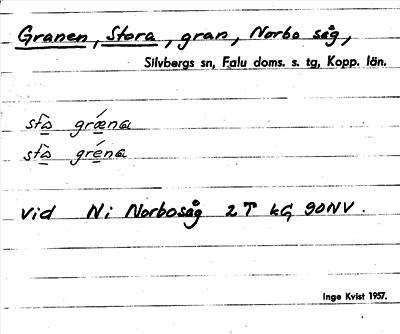 Granen, Stora, gran, Norbo såg,
Silvbergs sn, Falu doms. s. tg, Kopp. län.
vid Ni Norbosåg 2T kG 90NV.
Inge Kvist 1957.